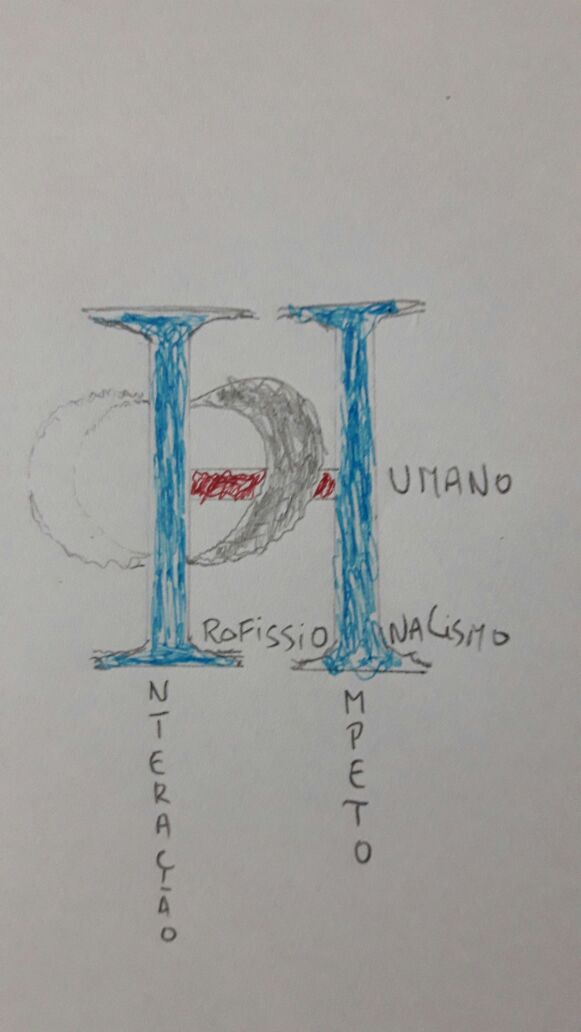 UMANO
ROFISSIONALISMO
NTERAÇÃO
MPETO